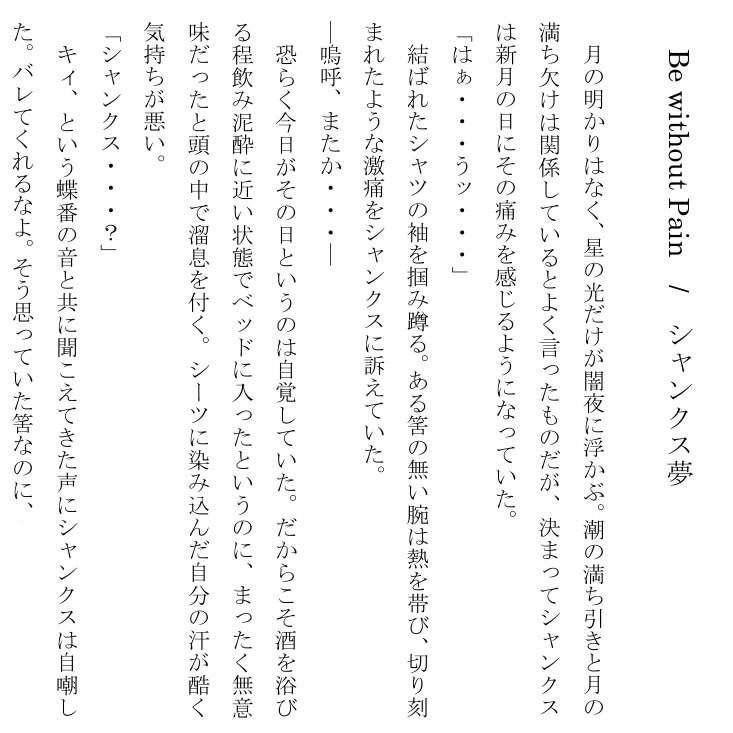 Be without Pain / シャンクス夢
月の明かりはなく、星の光だけが闇夜に浮かぶ。潮の満ち引きと月の
満ち欠けは関係しているとよく言ったものだが、決まってシャンクス
は新月の日にその痛みを感じるようになっていた。
「はぁ・・・うッ・・・」
結ばれたシャツの袖を掴み蹲る。ある筈の無い腕は熱を帯び、切り刻
まれたような激痛をシャンクスに訴えていた。
―嗚呼、またか・・・―
恐らく今日がその日というのは自覚していた。だからこそ酒を浴び
る程飲み泥酔に近い状態でベッドに入ったというのに、まったく無意
味だったと頭の中で溜息を付く。シーツに染み込んだ自分の汗が酷く
気持ちが悪い。
「シャンクス・・・？」
キィ、という蝶番の音と共に聞こえてきた声にシャンクスは自嘲し
た。バレてくれるなよ。そう思っていた筈なのに、